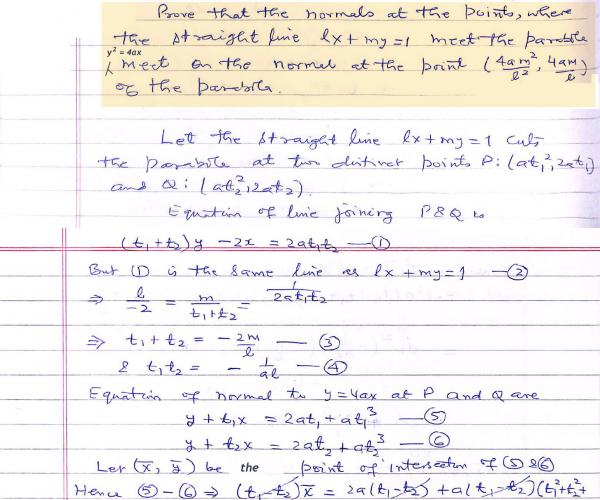 Prove that the normals at the points, where
the straight line lx + my = 1 meet the parabola
y² = 4ax
meet on the normal at the point (4am²/l², 4am/l)
of the parabola.
Let the straight line lx + my = 1 cuts
the parabola at two distinct points P: (at₁², 2at₁)
and Q: (at₂², 2at₂).
Equation of line joining P & Q is
(t₁+t₂)y - 2x = 2at₁t₂ — ①
But ① is the same line as lx + my = 1 — ②
⇒ l/-2 = m/t₁+t₂ = 1/2at₁t₂
⇒ t₁ + t₂ = - 2m/l — ③
& t₁t₂ = - 1/al — ④
Equation of normal to y = 4ax at P and Q are
y + t₁x = 2at₁ + at₁³ — ⑤
y + t₂x = 2at₂ + at₂³ — ⑥
Let (x̄, ȳ) be the point of intersection of ⑤ & ⑥
Hence ⑤ - ⑥ ⇒ (t₁-t₂)x̄ = 2a(t₁-t₂) + a(t₁-t₂)(t₁²+t₂²+